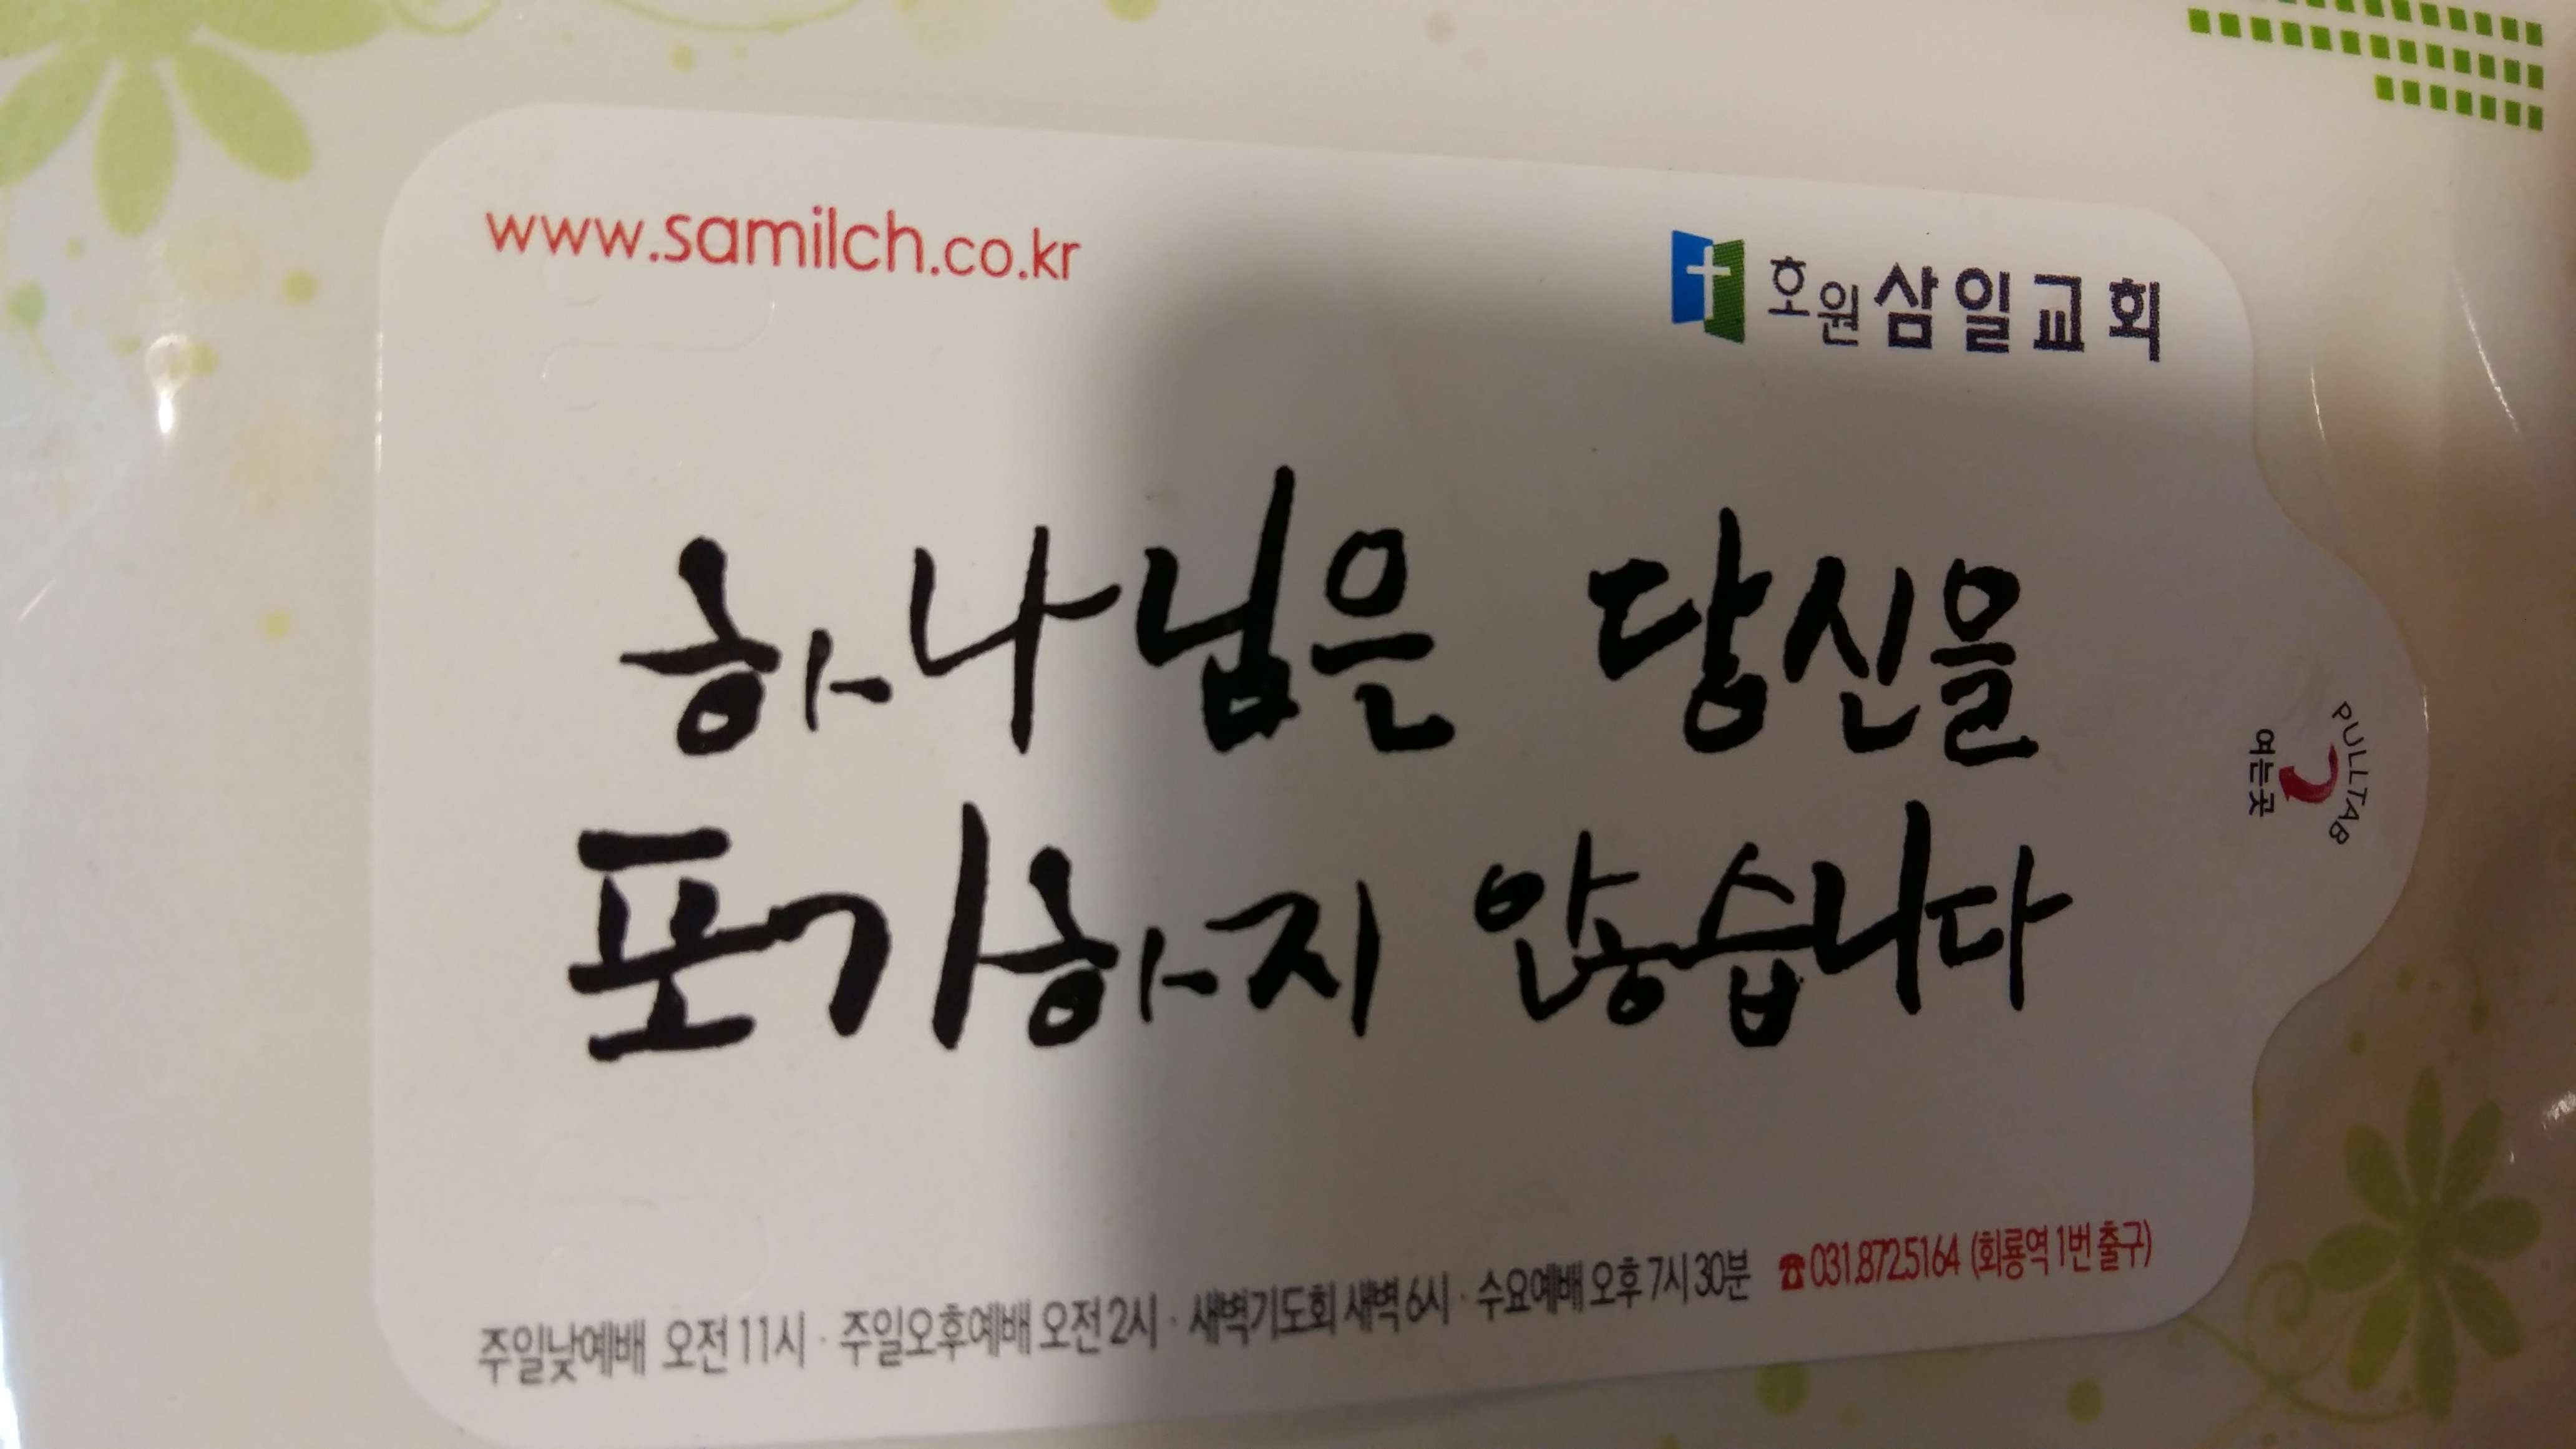 www.samilch.co.kr
호원삼일교회
하나님은 당신을
포기하지 않습니다
PULL TAB
여는곳
주일낮예배 오전 11시 · 주일오후예배 오전 2시 · 새벽기도회 새벽 6시 · 수요예배 오후 7시 30분 ☎ 031.872.5164 (회룡역 1번 출구)